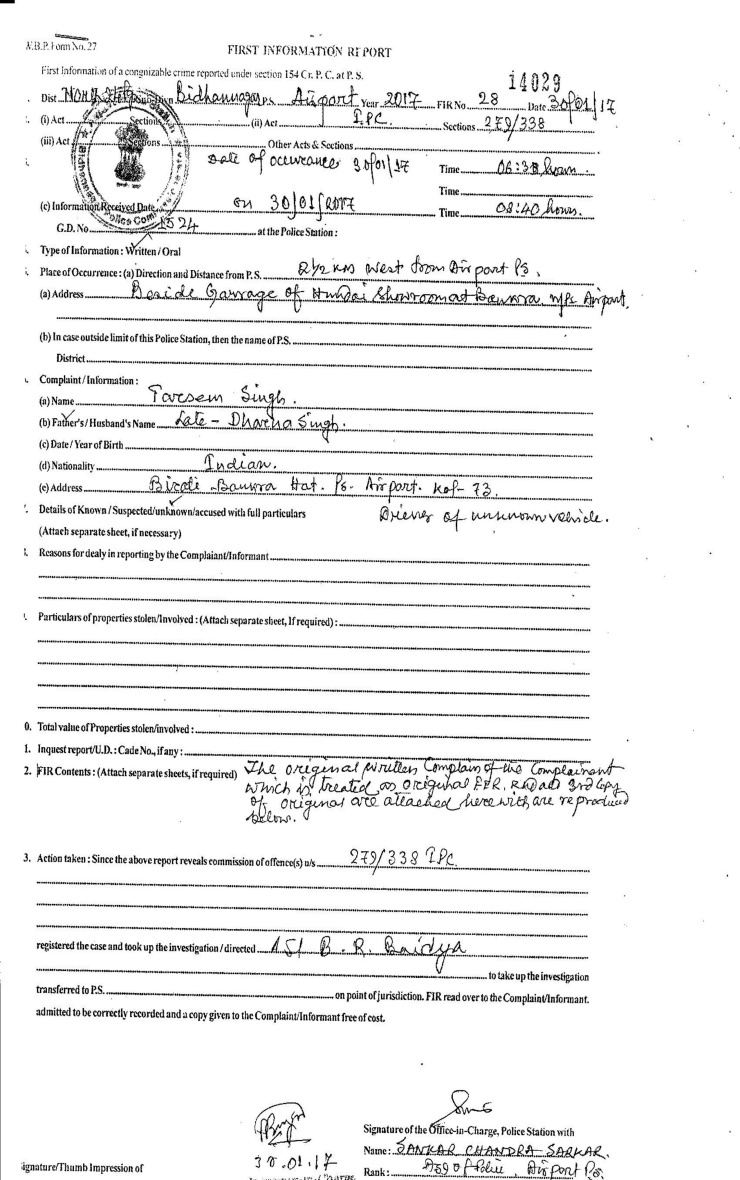 W.B.P. Form No. 27
FIRST INFORMATION REPORT
First Information of a congnizable crime reported under section 154 Cr. P. C. at P. S.
14029
Dist Bidhannagar P.S. Airport Year 2017 FIR No. 28 Date 30/01/17
(i) Act Sections (ii) Act IPC. Sections 279/338
(iii) Act Sections Other Acts & Sections
Date of occurance 30/01/17 Time 06:30 hours.
Time
(c) Information Received Date on 30/01/2017 Time 08:40 hours.
G.D. No 1524 at the Police Station :
Type of Information : Written / Oral
Place of Occurrence : (a) Direction and Distance from P.S. 2 1/2 KMS West from Airport PS.
(a) Address Beside Garrage of Hundai Showroom at Bankra, Airport.
(b) In case outside limit of this Police Station, then the name of P.S.
District
Complaint / Information :
(a) Name Tarsem Singh.
(b) Father's / Husband's Name Late - Singh.
(c) Date / Year of Birth
(d) Nationality Indian.
(e) Address Birati Bankra Hat. PS- Airport. Kol- 73.
Details of Known / Suspected/unknown/accused with full particulars Driever of unknown vehicle.
(Attach separate sheet, if necessary)
Reasons for dealy in reporting by the Complaiant/Informant
Particulars of properties stolen/Involved : (Attach separate sheet, If required) :
0. Total value of Properties stolen/involved :
1. Inquest report/U.D. : Cade No., if any :
2. FIR Contents : (Attach separate sheets, if required) The original written Complain of the Complainant
which is treated as original FIR, and 3rd copy
of original are attached here with are reproduced
below.
3. Action taken : Since the above report reveals commission of offence(s) u/s 279/338 IPC.
registered the case and took up the investigation / directed ASI B. R. Baidya
to take up the investigation
transferred to P.S. on point of jurisdiction. FIR read over to the Complaint/Informant.
admitted to be correctly recorded and a copy given to the Complaint/Informant free of cost.
30.01.17
Signature of the Office-in-Charge, Police Station with
Name : SANKAR CHANDRA SARKAR.
ignature/Thumb Impression of
Rank : of Police, Airport PS.